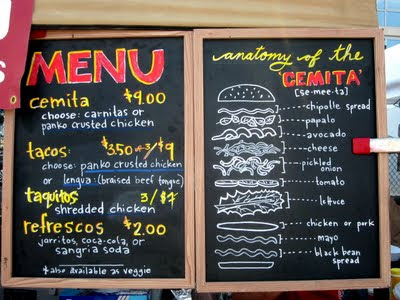 MENU
cemita $9.00
choose: carnitas or
panko crusted chicken
tacos: $3.50 or 3/$9
choose: panko crusted chicken
or lengua: (braised beef tongue)
taquitos 3/$7
shredded chicken
refrescos $2.00
jarritos, coca-cola, or
sangria soda
*also available as veggie
anatomy of the
"CEMITA"
[se·mee·ta]
chipotle spread
papalo
avocado
cheese
pickled
onion
tomato
lettuce
chicken or pork
mayo
black bean
spread